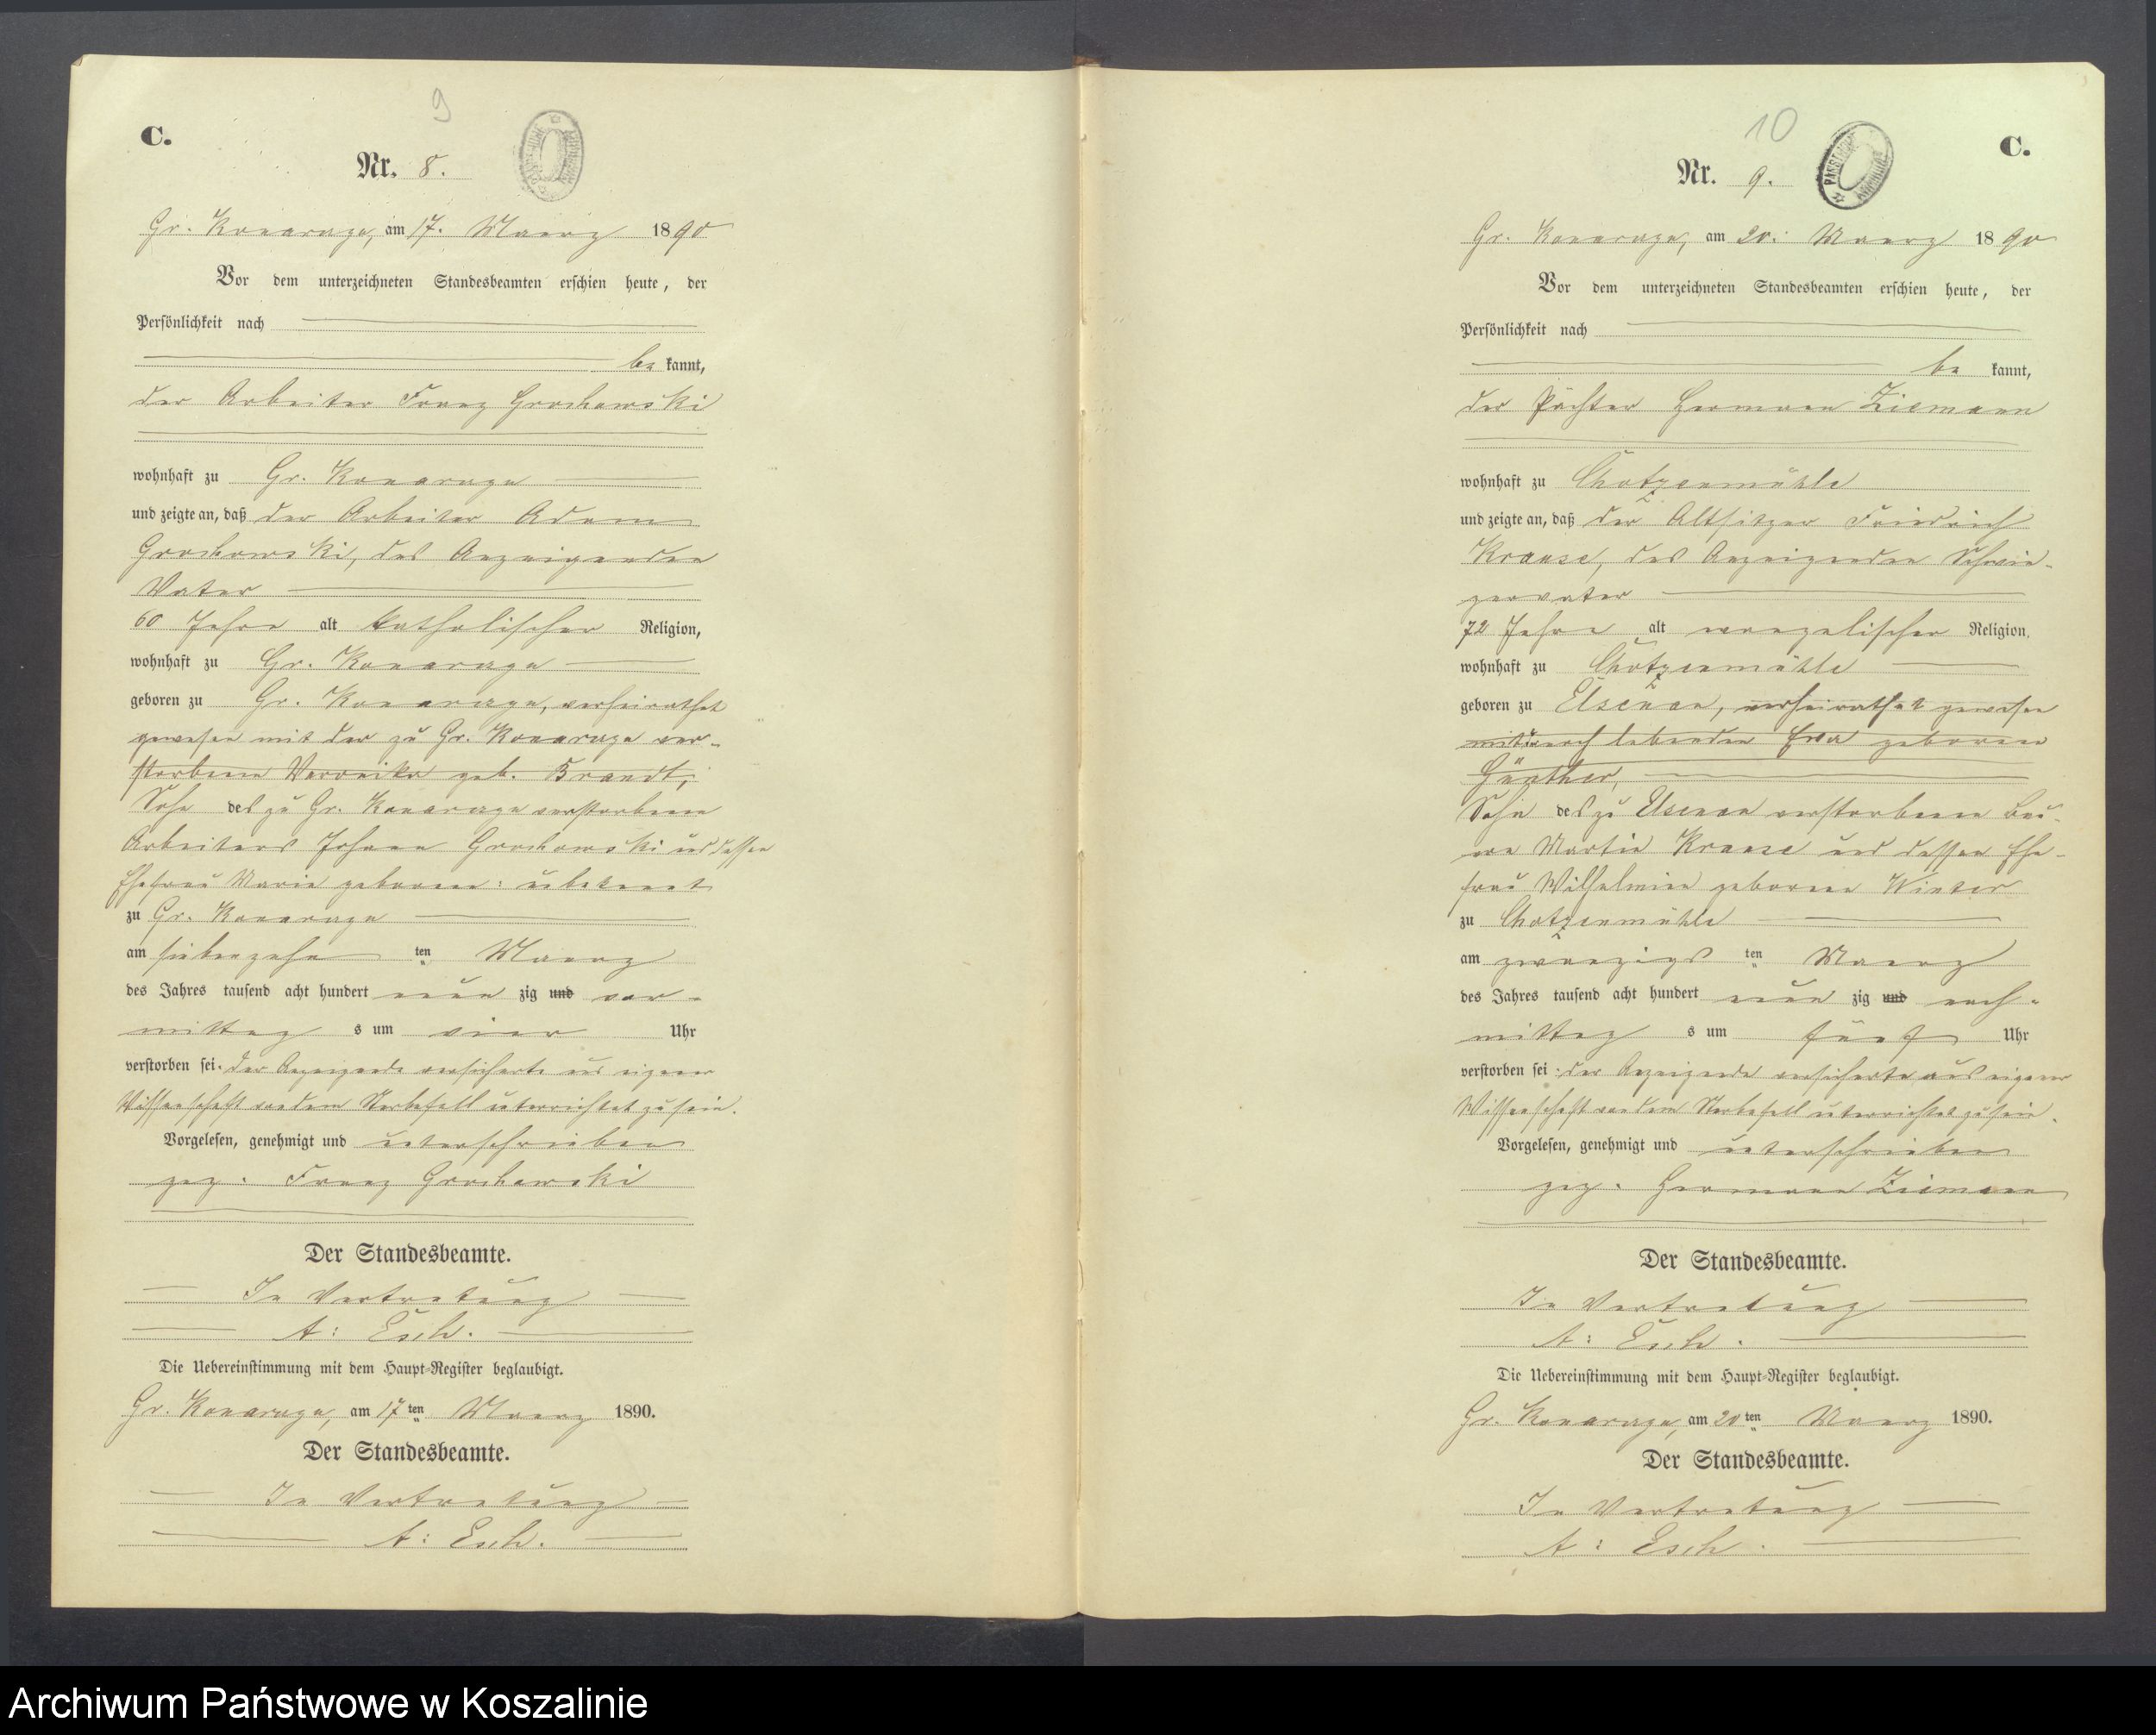 9
C.
Nr. 8.
Gr. Konarzyn, am 17. Maerz 1890
Vor dem unterzeichneten Standesbeamten erschien heute, der
Persönlichkeit nach
be kannt,
der Arbeiter Franz Grochowski
wohnhaft zu Gr. Konarzyn
und zeigte an, daß der Arbeiter Adam
Grochowski, des Anzeigenden
Vater
60 Jahre alt katholischer Religion,
wohnhaft zu Gr. Konarzyn
geboren zu Gr. Konarzyn, verheirathet
gewesen mit der zu Gr. Konarzyn ver-
storbenen Veronika geb. Brandt,
Sohn des zu Gr. Konarzyn verstorbenen
Arbeiters Johann Grochowski und dessen
Ehefrau Marie geborene: unbekannt
zu Gr. Konarzyn
am siebenzehn ten Maerz
des Jahres tausend acht hundert neun zig und vor-
mittag s um vier Uhr
verstorben sei. der Anzeigende versicherte aus eigener
Wissenschaft von dem Sterbefall unterrichtet zu sein.
Vorgelesen, genehmigt und unterschrieben
gez. Franz Grochowski
Der Standesbeamte.
In Vertretung
A: Esch.
Die Uebereinstimmung mit dem Haupt-Register beglaubigt.
Gr. Konarzyn, am 17 ten Maerz 1890.
Der Standesbeamte.
In Vertretung
A: Esch.
10
C.
Nr. 9.
Gr. Konarzyn, am 20. Maerz 1890
Vor dem unterzeichneten Standesbeamten erschien heute, der
Persönlichkeit nach
be kannt,
der Pächter Hermann Ziemann
wohnhaft zu Chotzenmühle
und zeigte an, daß der Altsitzer Friedrich
Krause, des Anzeigenden Schwie-
gervater
72 Jahre alt evangelischer Religion,
wohnhaft zu Chotzenmühle
geboren zu Elsenau, verheirathet gewesen
mit noch lebenden Eva geborene
Günther,
Sohn des zu Elsenau verstorbenen Bau-
ern Martin Krause und dessen Ehe-
frau Wilhelmine geborene Winter
zu Chotzenmühle
am zwanzigs ten Maerz
des Jahres tausend acht hundert neun zig und nach-
mittag s um fünf Uhr
verstorben sei: der Anzeigende versicherte aus eigener
Wissenschaft von dem Sterbefall unterrichtet zu sein.
Vorgelesen, genehmigt und unterschrieben
gez. Hermann Ziemann
Der Standesbeamte.
In Vertretung
A: Esch.
Die Uebereinstimmung mit dem Haupt-Register beglaubigt.
Gr. Konarzyn, am 20 ten Maerz 1890.
Der Standesbeamte.
In Vertretung
A: Esch.
Archiwum Państwowe w Koszalinie